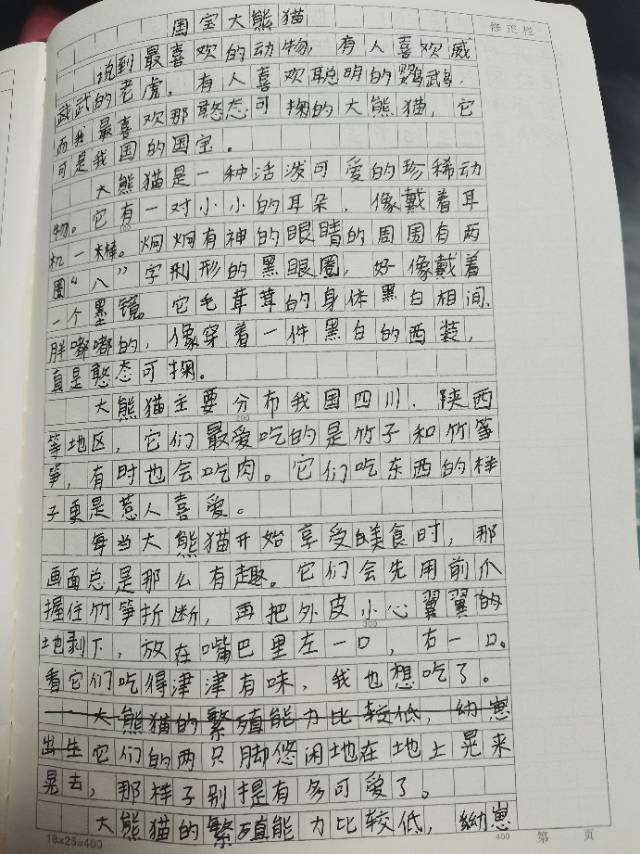 国宝大熊猫
修正栏
说到最喜欢的动物，有人喜欢威
武的老虎。有人喜欢聪明的鹦鹉，
而我最喜欢那憨态可掬的大熊猫，它
可是我国的国宝。
大熊猫是一种活泼可爱的珍稀动
物。它有一对小小的耳朵，像戴着耳
机一样。炯炯有神的眼睛的周围有两
圈“八”字形的黑眼圈，好像戴着
一个墨镜。它毛茸茸的身体黑白相间，
胖嘟嘟的，像穿着一件黑白的西装，
真是憨态可掬。
大熊猫主要分布我国四川．陕西
等地区，它们最爱吃的是竹子和竹笋
笋，有时也会吃肉。它们吃东西的样
子更是惹人喜爱。
每当大熊猫开始享受美食时，那
画面总是那么有趣。它们会先用前爪
握住竹笋折断，再把外皮小心翼翼的
地剥下，放在嘴巴里左一口，右一口。
看它们吃得津津有味，我也想吃了。
大熊猫的繁殖能力比较低，幼崽
出生它们的两只脚悠闲地在地上晃来
晃去，那样子别提有多可爱了。
大熊猫的繁殖能力比较低，幼崽
16×25=400
400 第 页